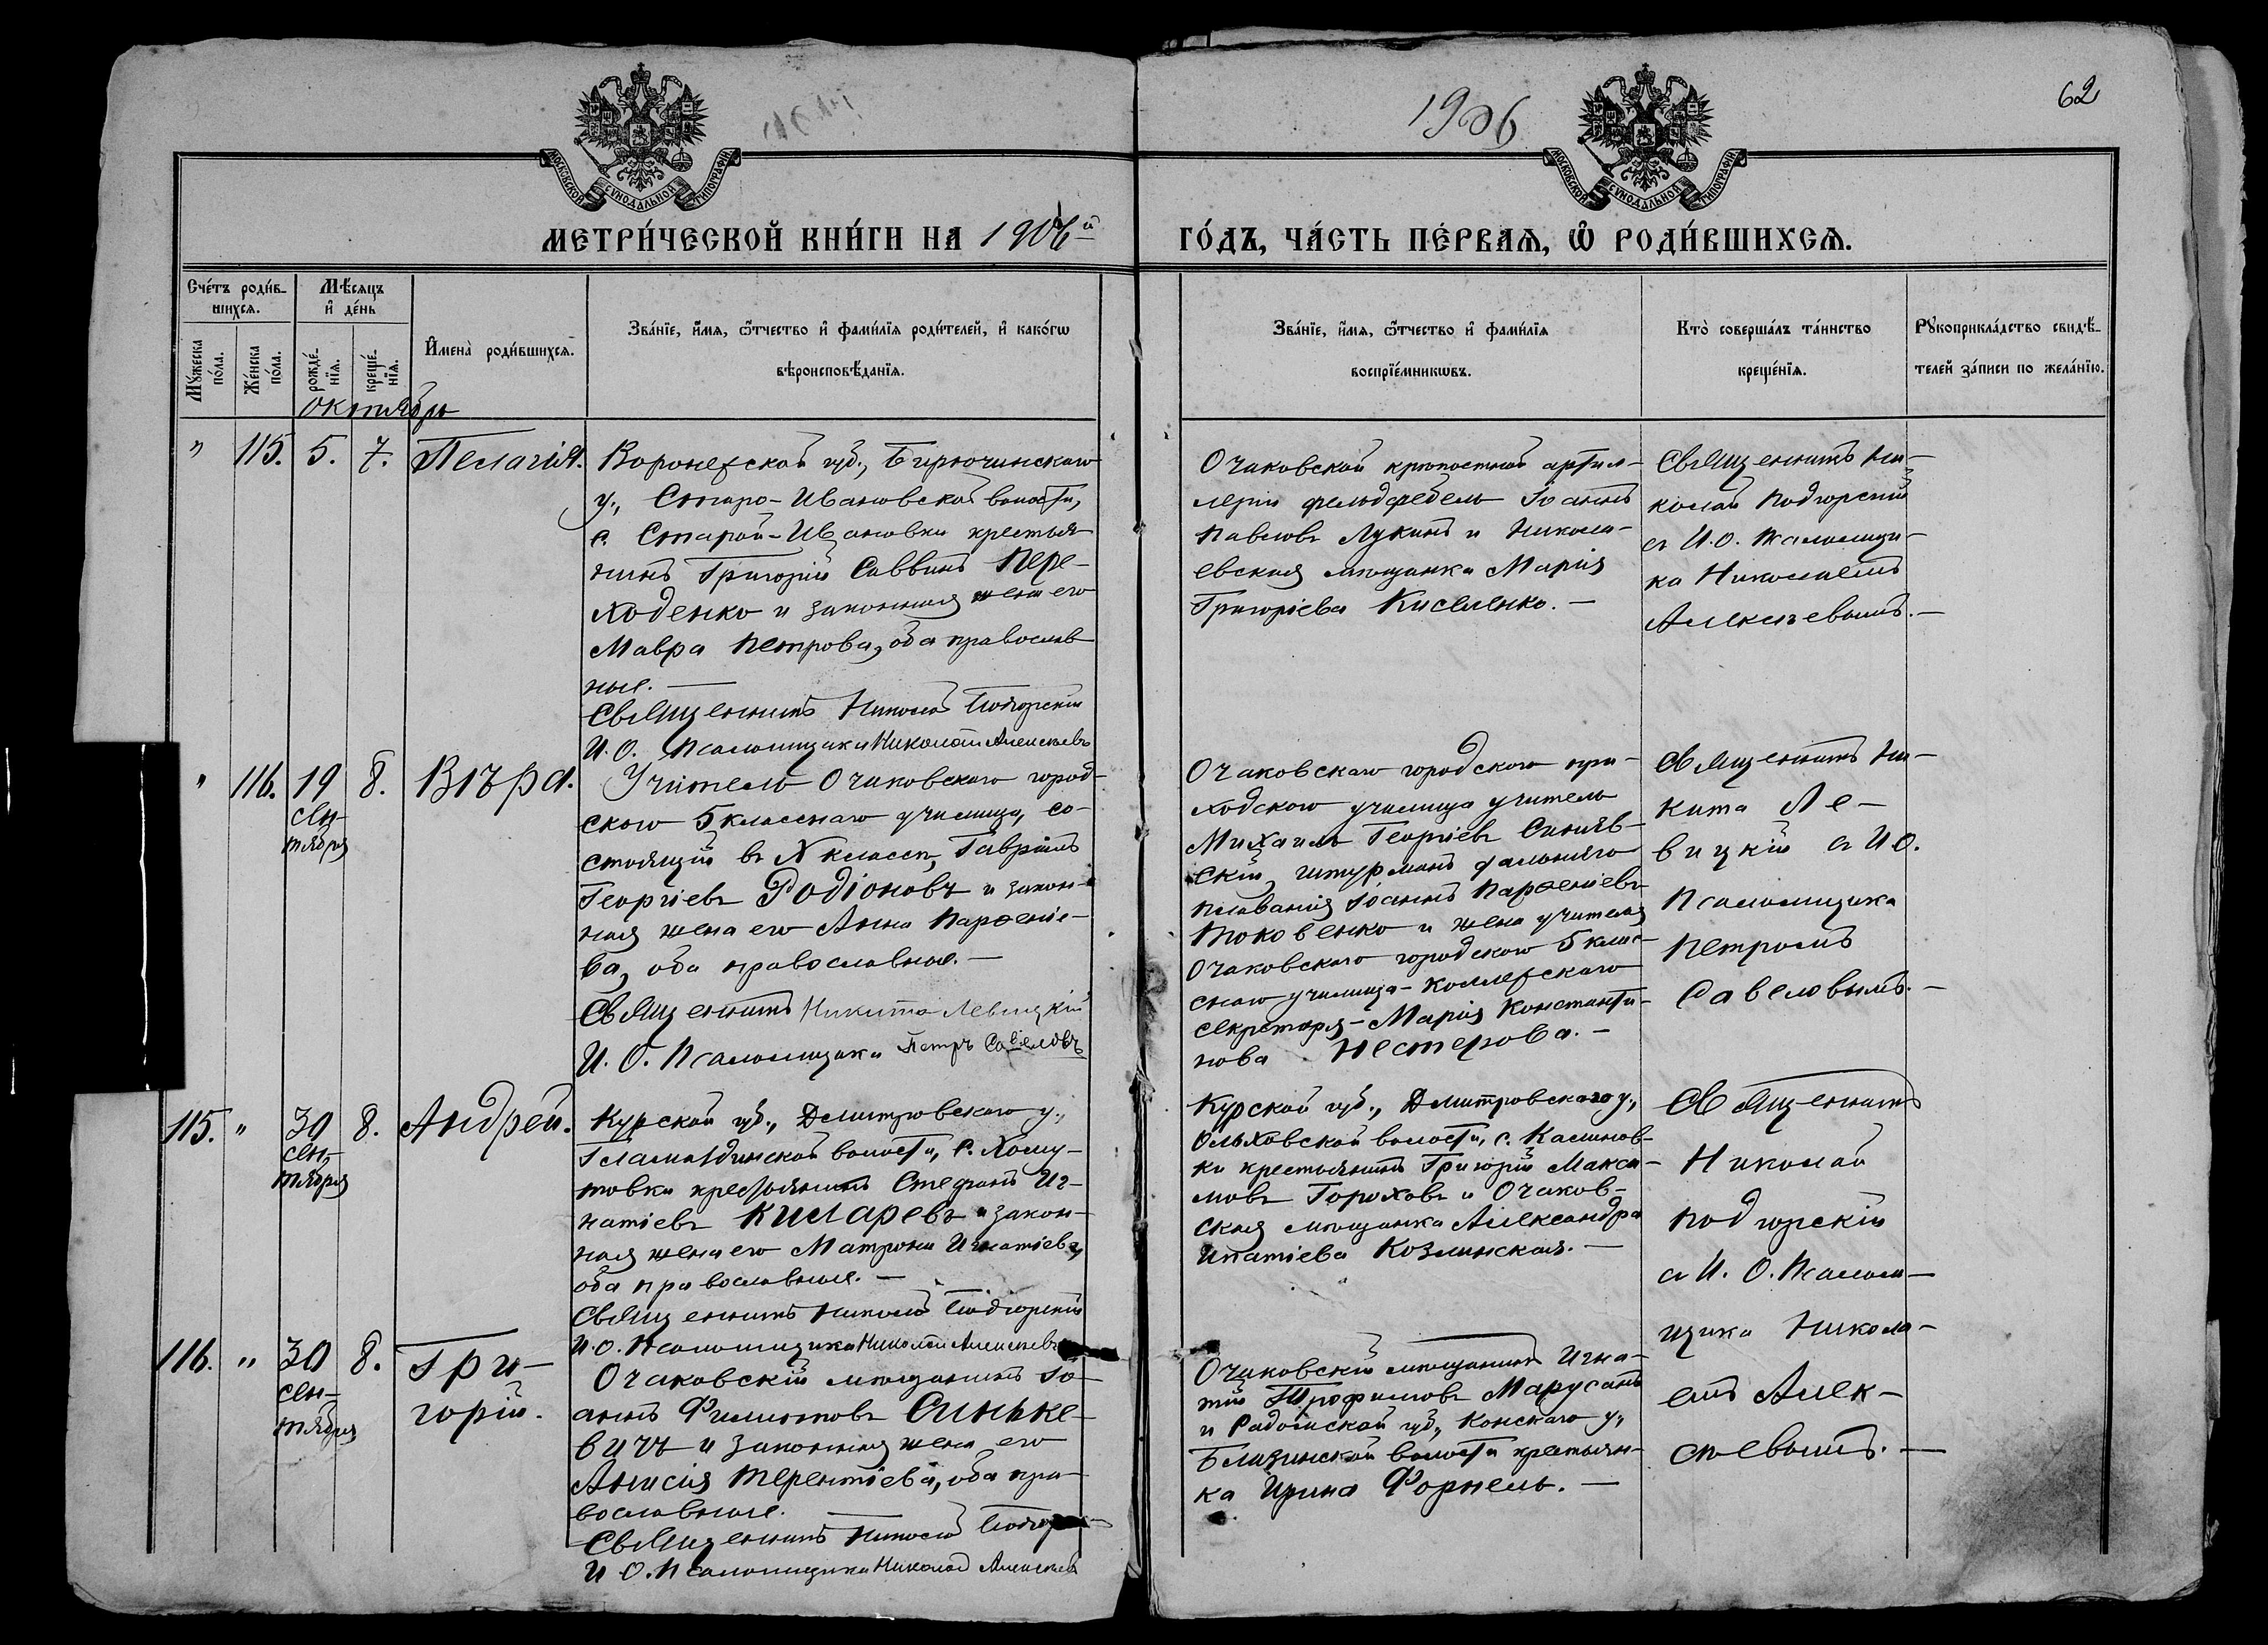 1906
62
МОСКОВСКОЙ СѴНОДАЛЬНОЙ ТИПОГРАФІИ
МОСКОВСКОЙ СѴНОДАЛЬНОЙ ТИПОГРАФІИ
МЕТРИ́ЧЕСКОЙ КНИ́ГИ НА 1906й
ГО́ДЪ, ЧА́СТЬ ПЕ́РВАѦ, Ѡ҆ РОДИ́ВШИХСѦ.
Сче́тъ роди́в-
шихсѧ.
Мꙋ́жеска по́ла.
Же́нска по́ла.
Мѣ́сѧцъ
и҆ де́нь
рожде́-
нїѧ.
креще́-
нїѧ.
И҆мена̀ роди́вшихсѧ.
Зва́нїе, и҆́мѧ, ѻ҆́тчество и҆ фами́лїѧ роди́телей, и҆ како́гѡ
вѣроисповѣ́данїѧ.
Зва́нїе, и҆́мѧ, ѻ҆́тчество и҆ фами́лїѧ
воспрїе́мникѡвъ.
Кто̀ соверша́лъ та́инство
креще́нїѧ.
Рꙋкоприкла́дство свидѣ́-
телей за́писи по жела́нїю.
октябрь
" 115. 5. 7. Пелагія.
Воронежской губ., Бирючинскаго
у., Старо-Ивановской волости,
с. Старой-Ивановки крестья-
нинъ Григорій Саввинъ Пере-
ходенко и законная жена его
Мавра Петрова, оба православ-
ные. —
Священникъ Николай Подгорскій
И. О. Псаломщика Николай Алексѣевъ
Очаковской крѣпостной артил-
леріи фельдфебель Іоаннъ
Павловъ Лукинъ и Никола-
евская мѣщанка Марія
Григоріева Киселенко. —
Священникъ Ни-
колай Подгорскій
съ И. О. Псаломщи-
ка Николаемъ
Алексѣевымъ. —
" 116. 19 сен-
тября 8. Вѣра.
Учитель Очаковскаго город-
ского 5 класснаго училища, со-
стоящій въ X классѣ, Гавріилъ
Георгіевъ Родіоновъ и закон-
ная жена его Анна Парѳеніе-
ва, оба православные. —
Священникъ Никита Левицкій
И. О. Псаломщика Петръ Савеловъ
Очаковскаго городского при-
ходского училища учитель
Михаилъ Георгіевъ Синяв-
скій, штурманъ дальняго
плаванія Іоаннъ Парѳеніевъ
Токовенко и жена учителя
Очаковскаго городского 5 клас-
снаго училища - коллежскаго
секретаря - Марія Константи-
нова Нестерова. —
Священникъ Ни-
кита Ле-
вицкій съ И О.
Псаломщика
Петромъ
Савеловымъ. —
115. " 30 сен-
тября 8. Андрей.
Курской губ., Дмитровскаго у.,
волости, с. Хому-
товки крестьянинъ Стефанъ Иг-
натіевъ Киларевъ и закон-
ная жена его Матрона Игнатіева,
оба православные. —
Священникъ Николай Подгорскій
И. О. Псаломщика Николай Алексѣевъ
Курской губ., Дмитровскаго у.,
Ольховской волости, с. Калинов-
ки крестьянинъ Григорій Макси-
мовъ Гороховъ и Очаков-
ская мѣщанка Александра
Ипатіева Козлинская. —
Священникъ
Николай
Подгорскій
съ И. О. Псалом-
щика Никола-
емъ Алек-
сѣевымъ. —
116. " 30 сен-
тября 8. Гри-
горій.
Очаковскій мѣщанинъ Іо-
аннъ Филиповъ Синьке-
вичъ и законная жена его
Анисія Терентіева, оба пра-
вославные. —
Священникъ Николай Подгорскій
И О. Псаломщика Николай Алексѣевъ
Очаковскій мѣщанинъ Игна-
тій Трофимовъ Марусанъ
и Радомской губ., Конскаго у.,
Близинской волости крестьян-
ка Ирина Форнель. —